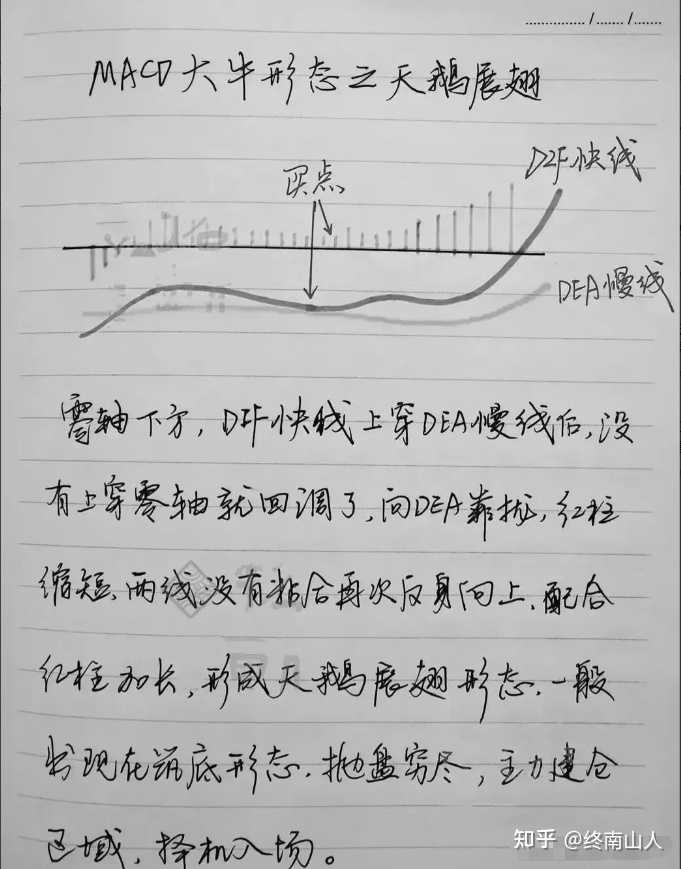 MACD大牛形态之天鹅展翅
买点
DIF快线
DEA慢线
零轴下方,DIF快线上穿DEA慢线后,没
有上穿零轴就回调了,向DEA靠拢,红柱
缩短、两线没有粘合再次反身向上,配合
红柱加长,形成天鹅展翅形态.一般
出现在筑底形态.抛盘穷尽,主力建仓
区域,择机入场。
知乎 @终南山人